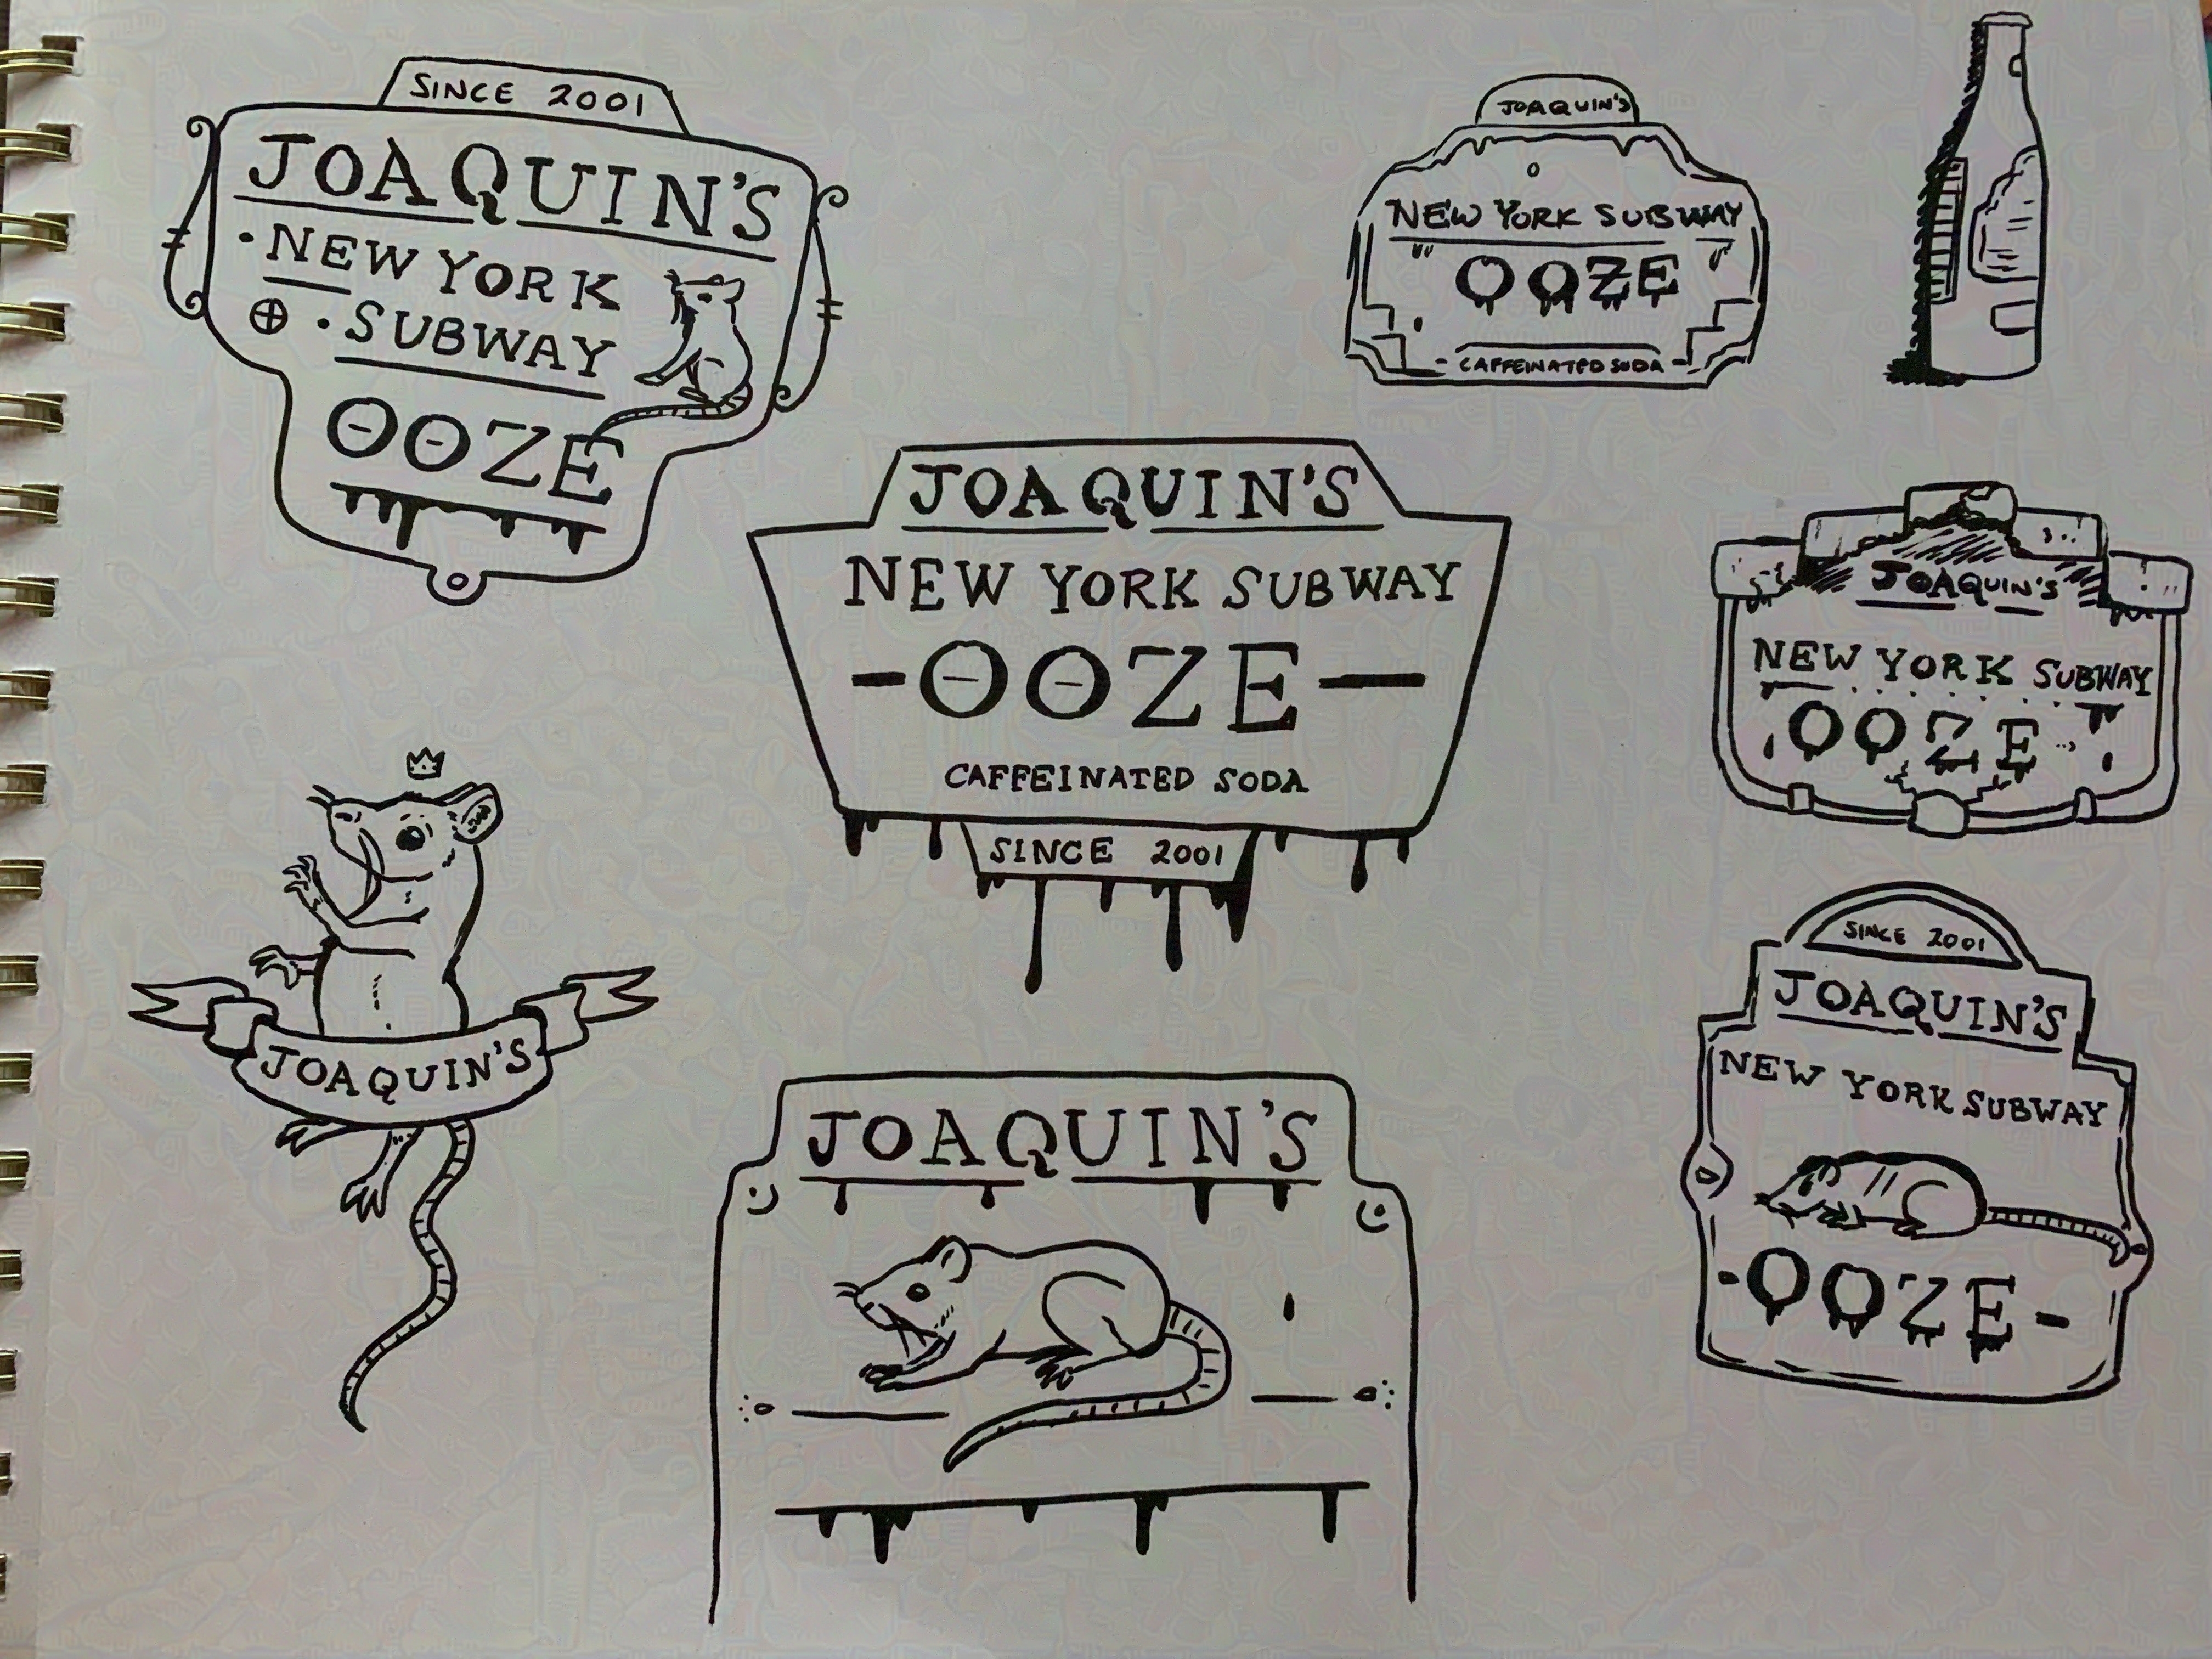 SINCE 2001
JOAQUIN'S
·NEW YORK
·SUBWAY
OOZE
JOAQUIN'S
NEW YORK SUBWAY
OOZE
-CAFFEINATED SODA-
JOAQUIN'S
NEW YORK SUBWAY
-OOZE-
CAFFEINATED SODA
SINCE 2001
JOAQUIN'S
NEW YORK SUBWAY
OOZE
JOAQUIN'S
JOAQUIN'S
SINCE 2001
JOAQUIN'S
NEW YORK SUBWAY
-OOZE-